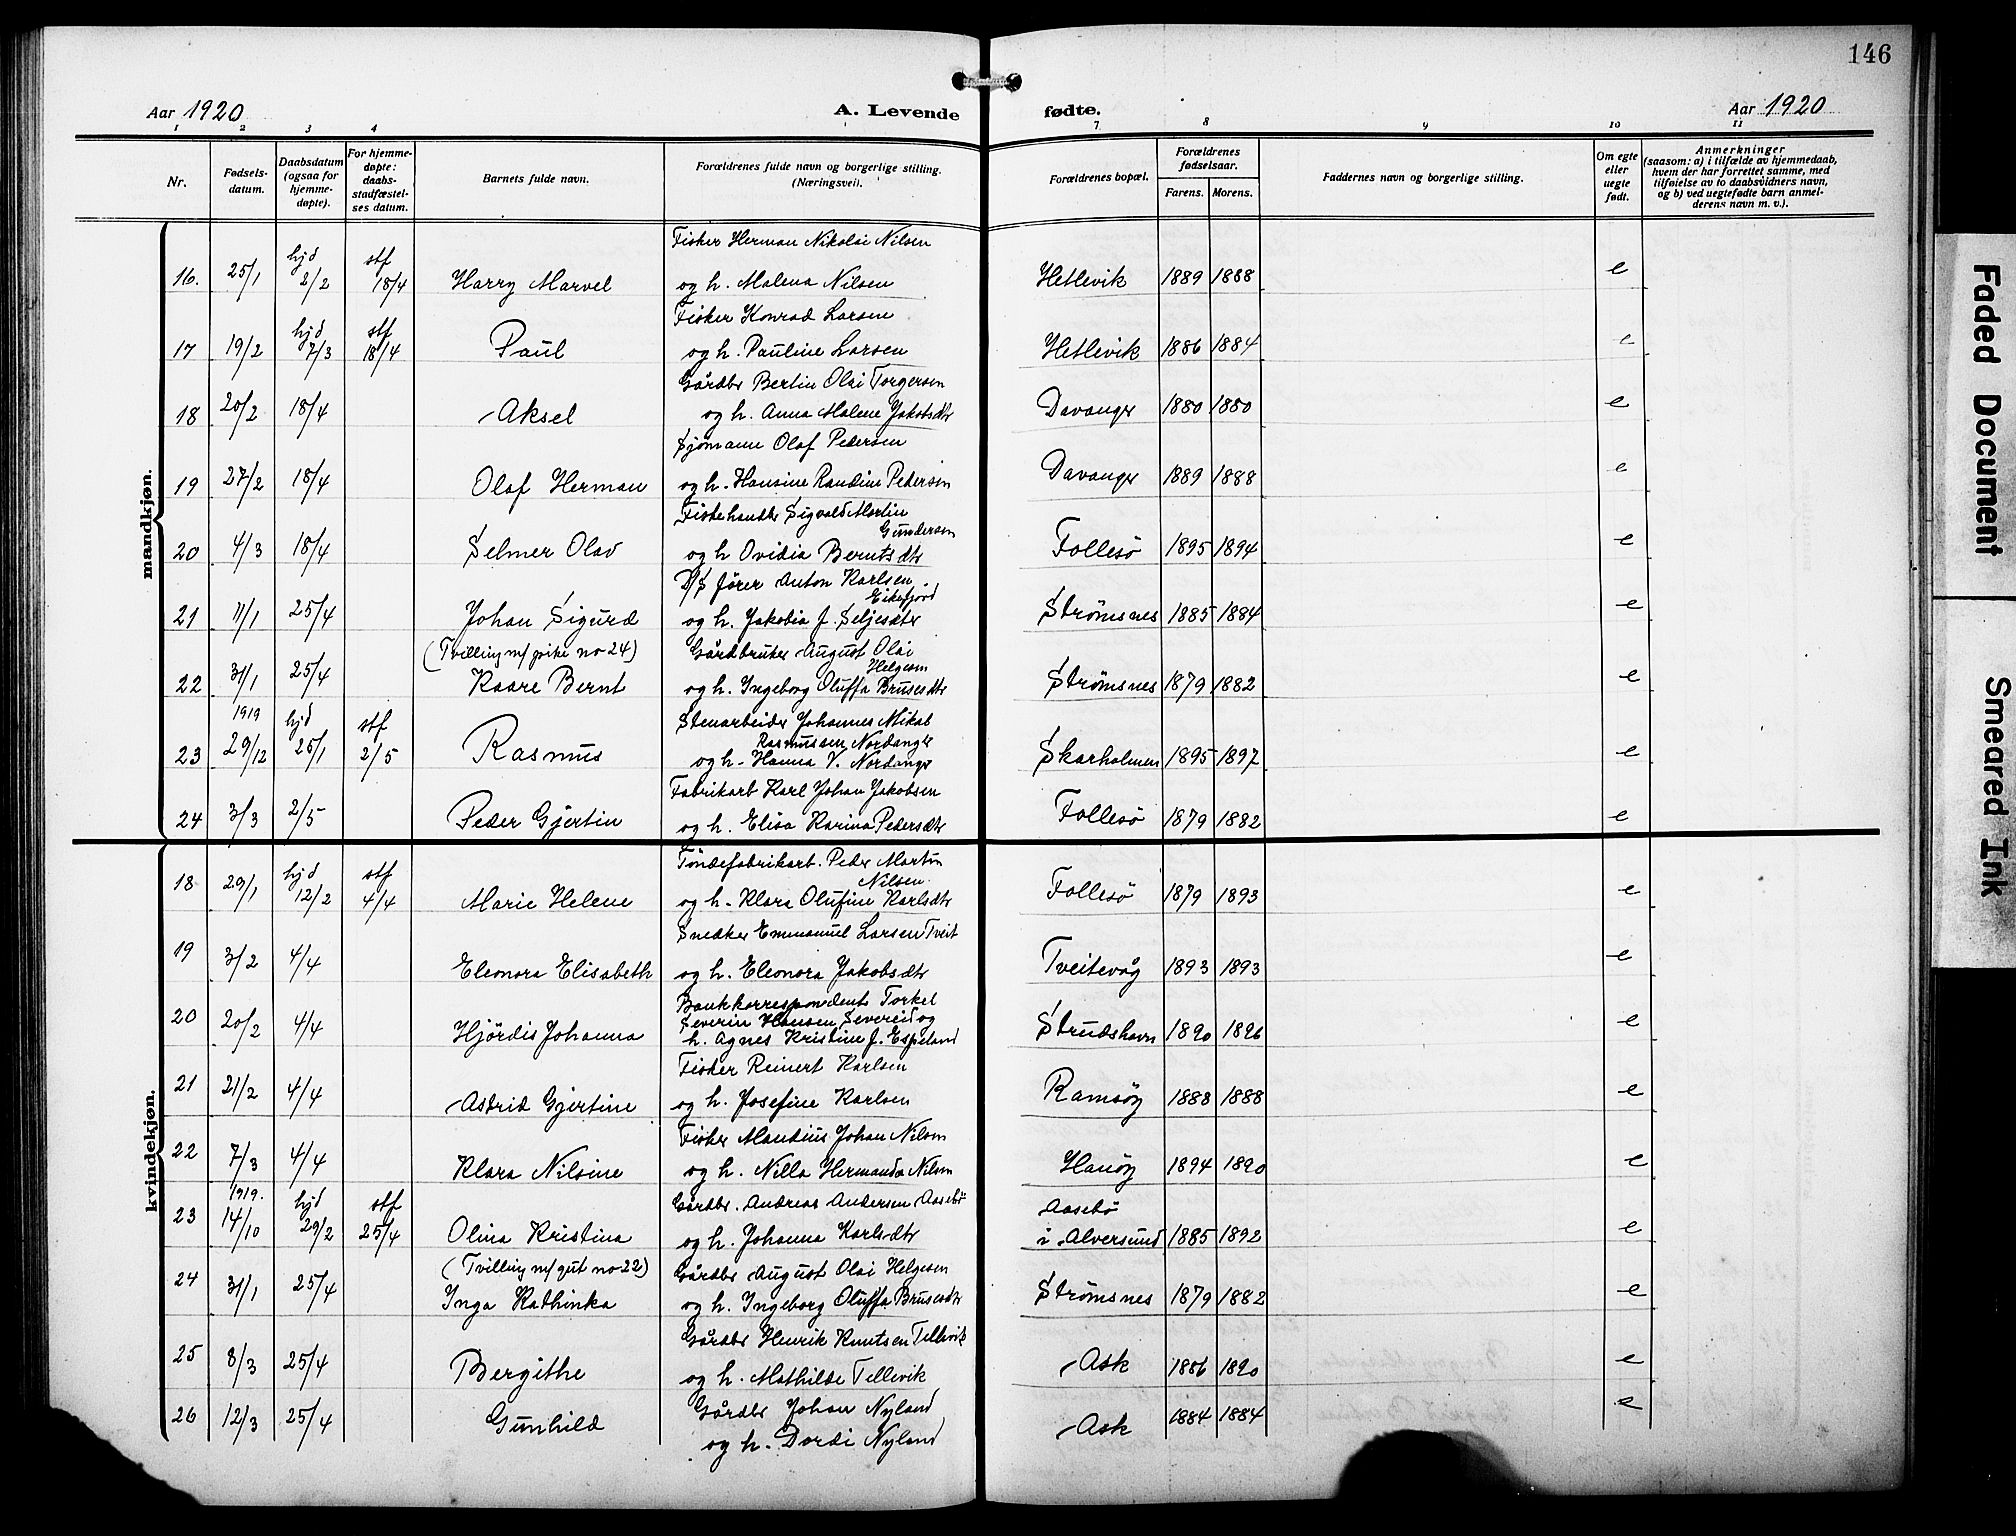 146
Aar 1920
A. Levende fødte.
Aar 1920
1 2 3 4 7 8 9 10 11
Nr.
Fødsels-
datum.
Daabsdatum
(ogsaa for
hjemme-
døpte).
For hjemme-
døpte:
daabs-
stadfæstel-
ses datum.
Barnets fulde navn.
Forældrenes fulde navn og borgerlige stilling.
(Næringsvei).
Forældrenes bopæl.
Forældrenes
fødselsaar.
Farens. Morens.
Faddernes navn og borgerlige stilling.
Om egte
eller
uegte
født.
Anmerkninger
(saasom: a) i tilfælde av hjemmedaab,
hvem der har forrettet samme, med
tilføielse av to daabsvidners navn,
og b) ved uegtefødte barn anmel-
derens navn m. v.).
mandkjøn.
Fisker Herman Nikolai Nilsen
hjd stf
16. 25/1 2/2 18/4 Harry Marvel og h. Malena Nilsen Hetlevik 1889 1888 e
Fisker Konrad Larsen
hjd stf
17 19/2 7/3 18/4 Paul og h. Pauline Larsen Hetlevik 1886 1884 e
Gårdbr Bertin Olai Torgersen
18 20/2 18/4 Aksel og h. Anna Malene Jakobsdtr Davanger 1880 1880 e
Sjömann Olaf Pedersen
19 27/2 18/4 Olaf Herman og h. Hansine Randine Pedersen Davanger 1889 1888 e
Fiskehandlr Sigvald Martin
Gundersen
20 4/3 18/4 Selmer Olav og h Ovidia Berntsdtr Follesö 1895 1894 e
D/S förer Anton Karlsen
Eikefjord
21 11/1 25/4 Johan Sigurd og h. Jakobia J. Seljesdtr Strömsnes 1885 1884 e
(Tvilling m/ pike no 24) Gårdbruker August Olai
Helgesen
22 31/1 25/4 Kaare Bernt og h. Ingeborg Oluffa Brusesdtr Strömsnes 1879 1882 e
1919 hjd stf Stenarbeider Johannes Mikal
Rasmussen Nordanger
23 29/12 25/1 2/5 Rasmus og h. Hanna V. Nordanger Skarholmen 1895 1897 e
Fabrikarb Karl Johan Jakobsen
24 3/3 2/5 Peder Gjertin og h. Elisa Karina Pedersdtr Follesö 1879 1882 e
kvindekjøn.
Töndefabrikarb. Peder Martin
hjd stf Nilsen.
18 29/1 12/2 4/4 Marie Helene og h. Klara Olufine Karlsdtr Follesö 1879 1893 e
Snedker Emmanuel Larsen Tveit
19 3/2 4/4 Eleonora Elisabeth og h. Eleonora Jakobsdtr Tveitevåg 1893 1893 e
Bankkorrespondent Torkel
Severin Hansen Severeid og
20 20/2 4/4 Hjördis Johanna h. Agnes Kristine J. Espeland Strudshavn 1890 1896 e
Fisker Reinert Karlsen
21 21/2 4/4 Astrid Gjertine og h. Josefine Karlsen Ramsöy 1888 1888 e
Fisker Mandius Johan Nilsen
22 7/3 4/4 Klara Nilsine og h. Nilla Hermanda Nilsen Hanöy 1894 1890 e
1919. hjd stf Gårdbr. Andreas Andersen Aasebö Aasebö
23 14/10 29/2 25/4 Olina Kristina og h. Johanna Karlsdtr i Alversund 1885 1892 e
(Tvilling m/ gut no 22) Gårdbr August Olai Helgesen
24 31/1 25/4 Inga Kathinka og h. Ingeborg Oluffa Brusesdtr Strömsnes 1879 1882 e
Gårdbr Henrik Knutsen Tellevik
25 8/3 25/4 Bergithe og h. Mathilde Tellevik Ask 1886 1890 e
Gårdbr Johan Nyland
26 12/3 25/4 Gunhild og h. Dordi Nyland Ask 1884 1884 e
Faded Document
Smeared Ink